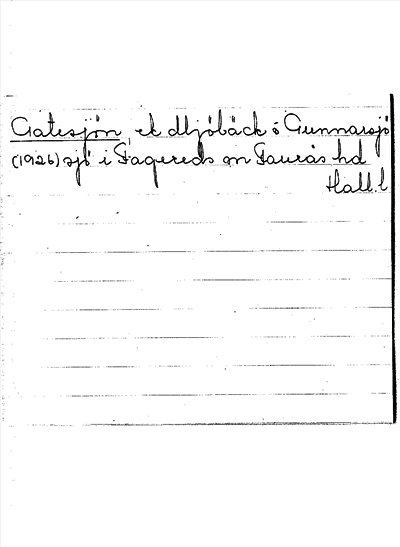 Gatesjön, ek Mjöbäck o Gunnarsjö
(1926) sjö i Fagereds sn Faurås hd
Hall. l